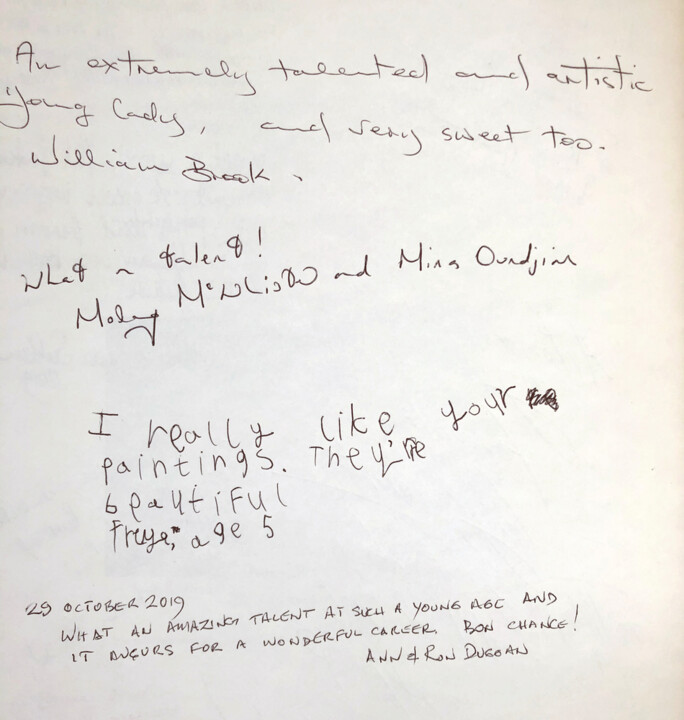 An extremely talented and artistic
young lady, and very sweet too.
William Brook.
What a talent!
and Mina
I really like your
paintings. They're
beautiful
Freya, age 5
29 OCTOBER 2019
WHAT AN AMAZING TALENT AT SUCH A YOUNG AGE AND
IT AUGURS FOR A WONDERFUL CAREER. BON CHANCE!
ANN & RON DUGGAN